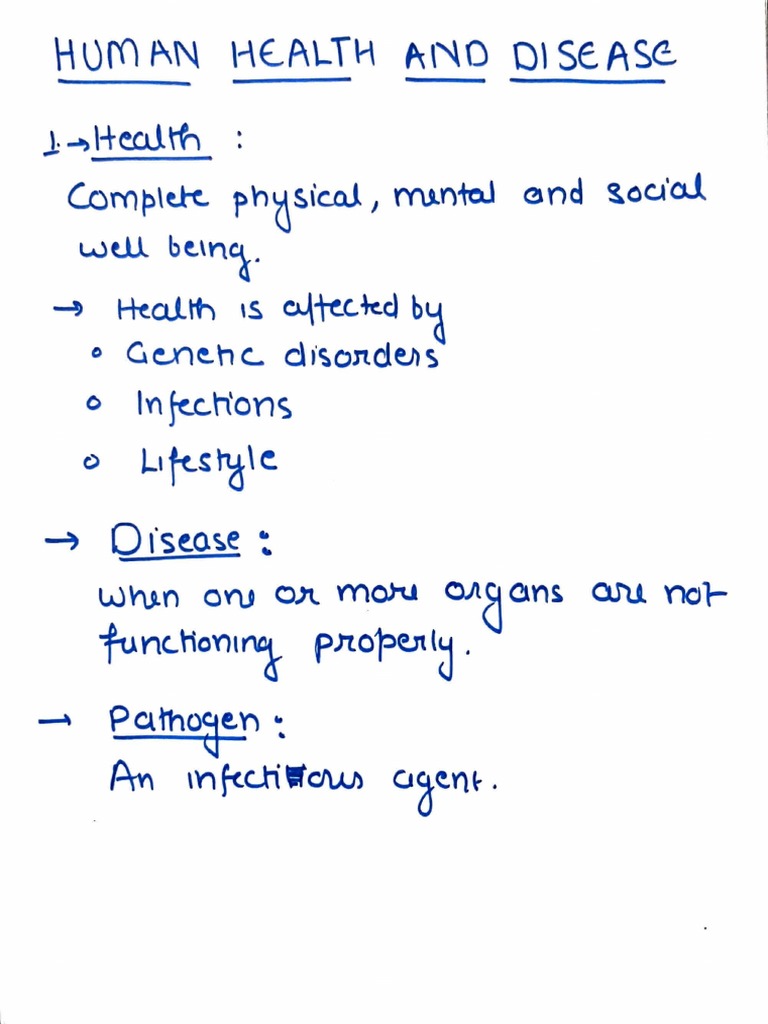 HUMAN HEALTH AND DISEASE
1. → Health :
Complete physical, mental and social
well being.
→ Health is affected by
• Genetic disorders
◦ Infections
◦ Lifestyle
→ Disease :
When one or more organs are not
functioning properly.
→ Pathogen :
An infectious agent.